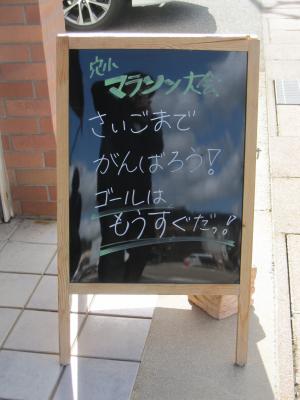 宛小
マラソン大会
さいごまで
がんばろう!
ゴールは
もうすぐだっ!